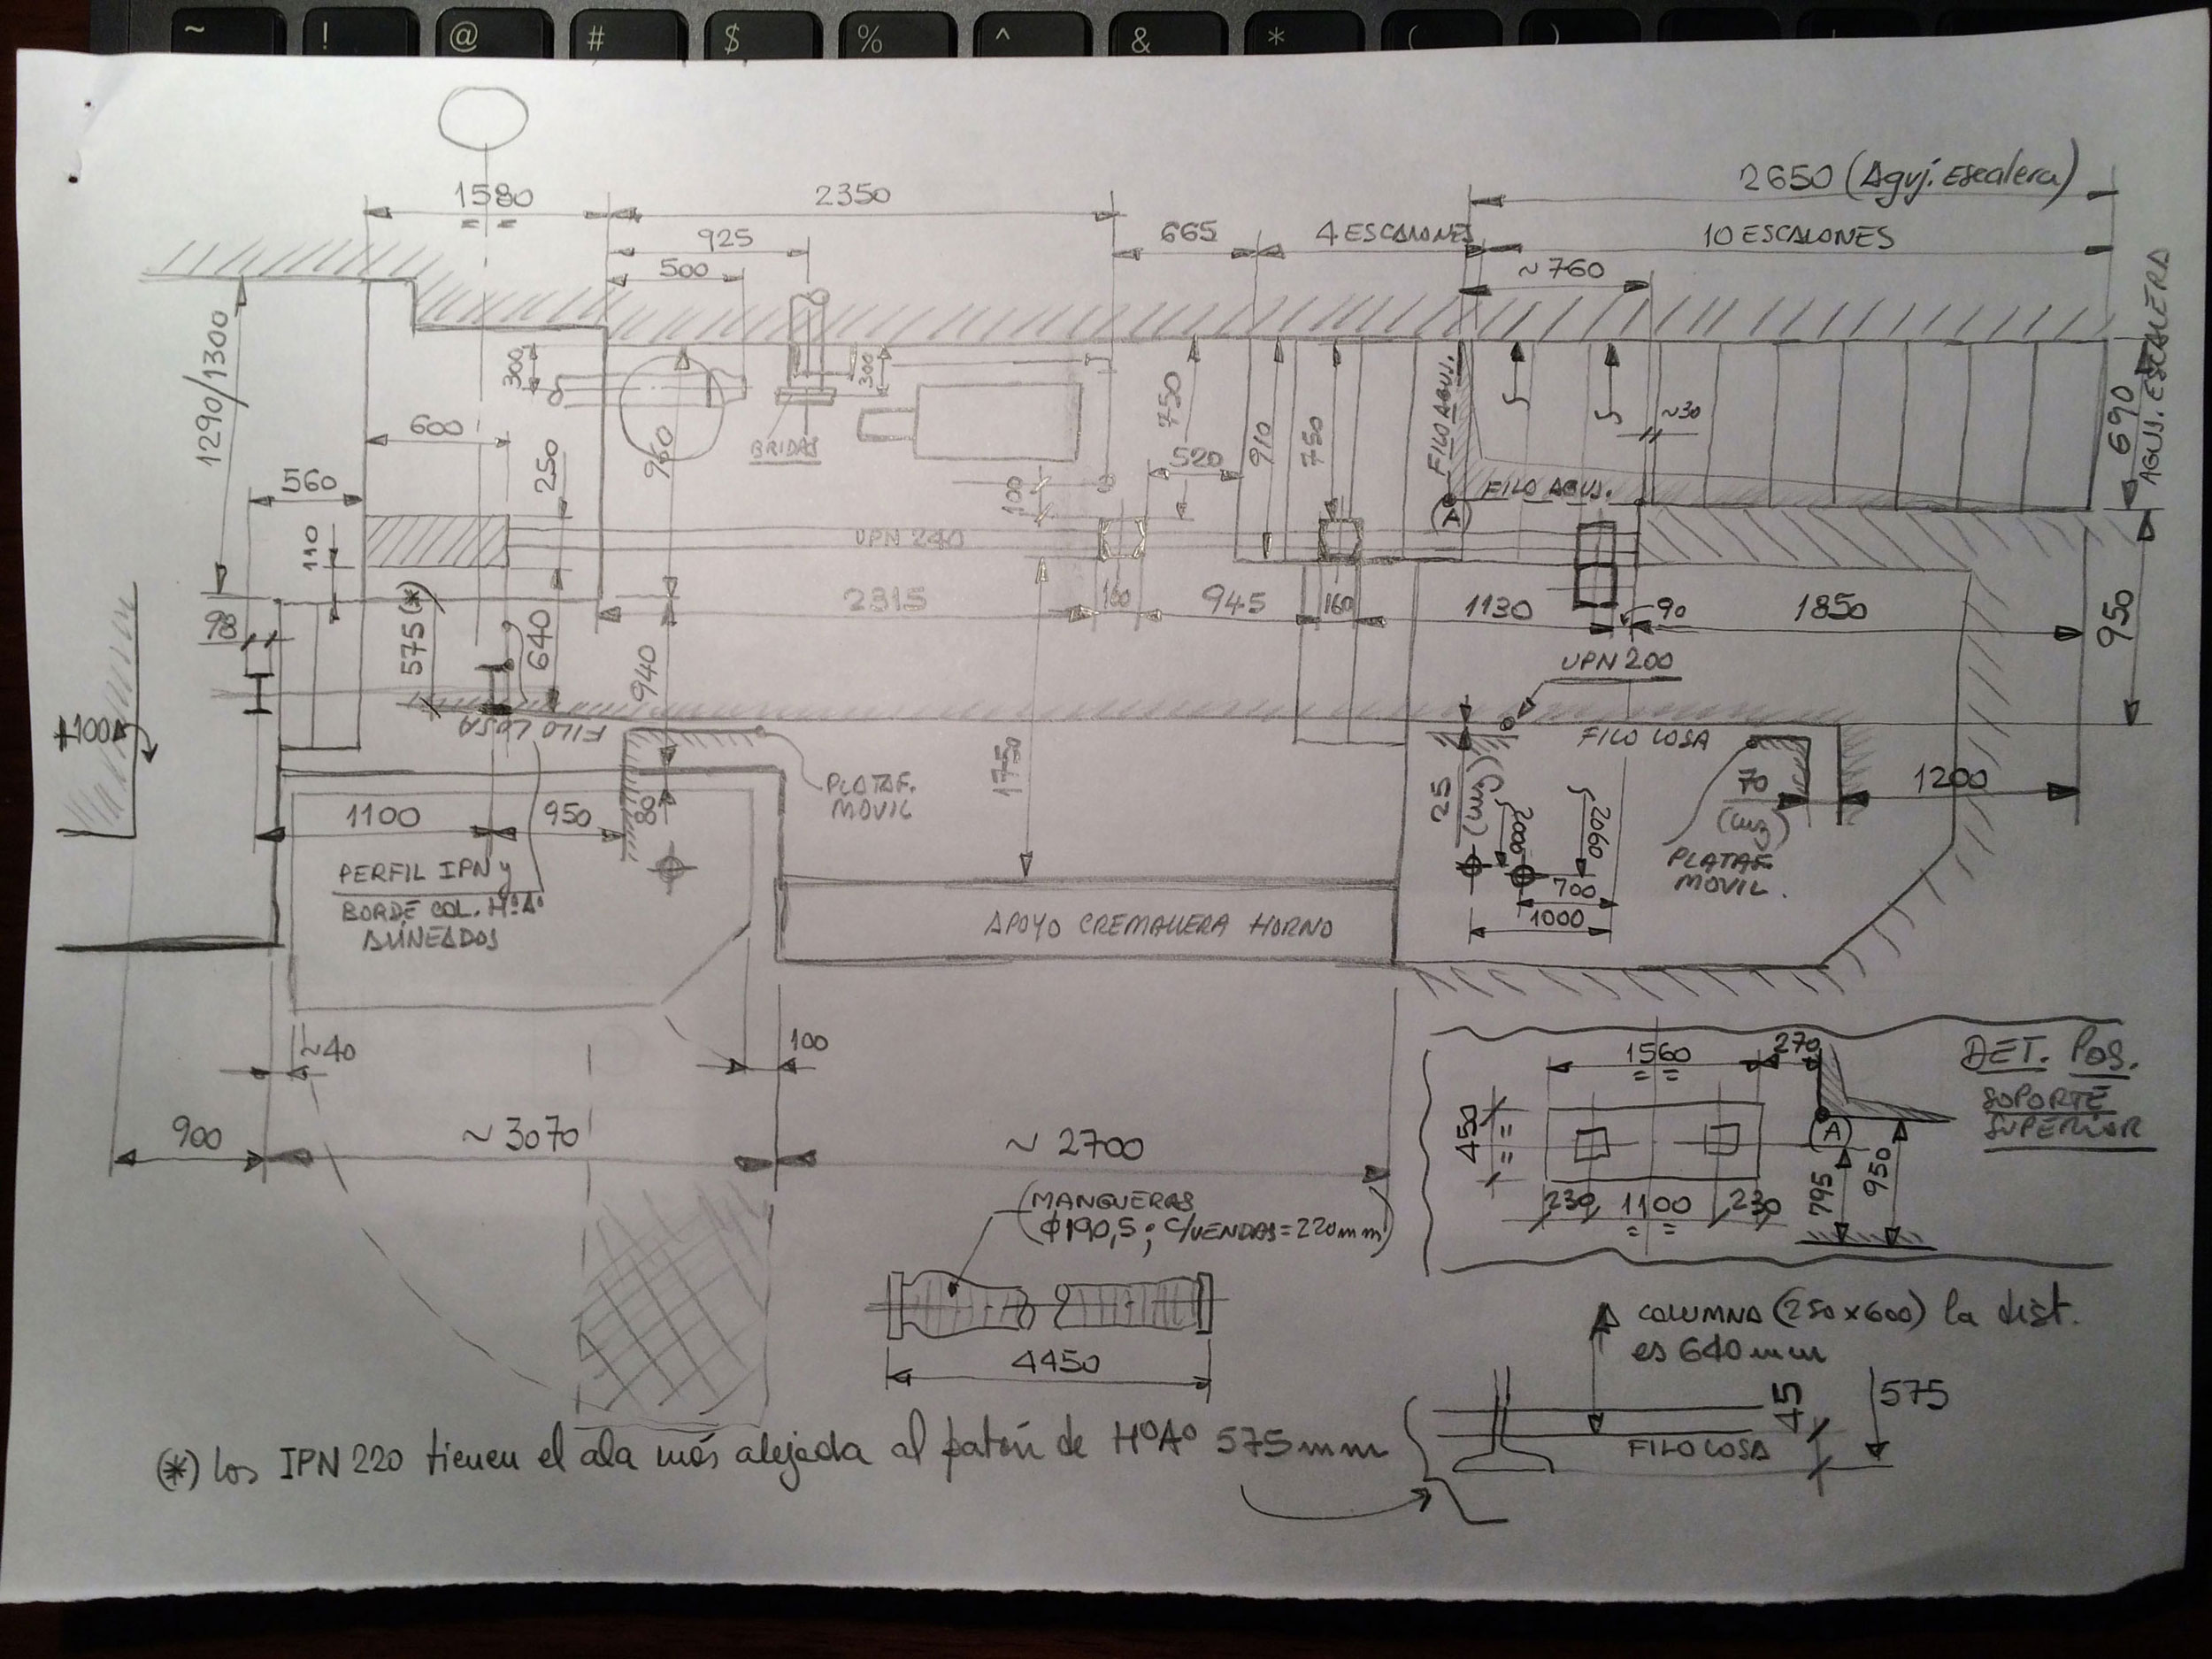 ~ ! @ # $ % ^ & * ( )
2650 (Aguj. Escalera)
1580
= =
2350
925
665
4 ESCALONES
10 ESCALONES
500
~760
1290/1300
300
300
750
910
750
FILO AGUJ.
~30
690
AGUJ. ESCALERA
600
250
960
BRIDAS
520
560
100
FILO AGUJ.
A
110
UPN 240
98
575 (*)
640
940
2315
160
945
160
1130
90
1850
950
UPN 200
FILO LOSA
FILO LOSA
+100
1100
950
80
PLATAF.
MOVIL
1750
25
(luz)
2000
2060
700
1000
70
(luz)
1200
PLATAF.
MOVIL.
PERFIL IPN y
BORDE COL. HºAº
ALINEADOS
APOYO CREMALLERA HORNO
~40
100
900
~3070
~2700
1560
= =
270
DET. POS.
SOPORTE
SUPERIOR
450
= =
A
795
950
230
1100
= =
230
MANGUERAS
(ϕ190,5; C/VENDAS=220mm)
4450
A COLUMNA (250x600) la dist.
es 640mm
45
575
FILO LOSA
(*) Los IPN 220 tienen el ala más alejada al patón de HºAº 575mm